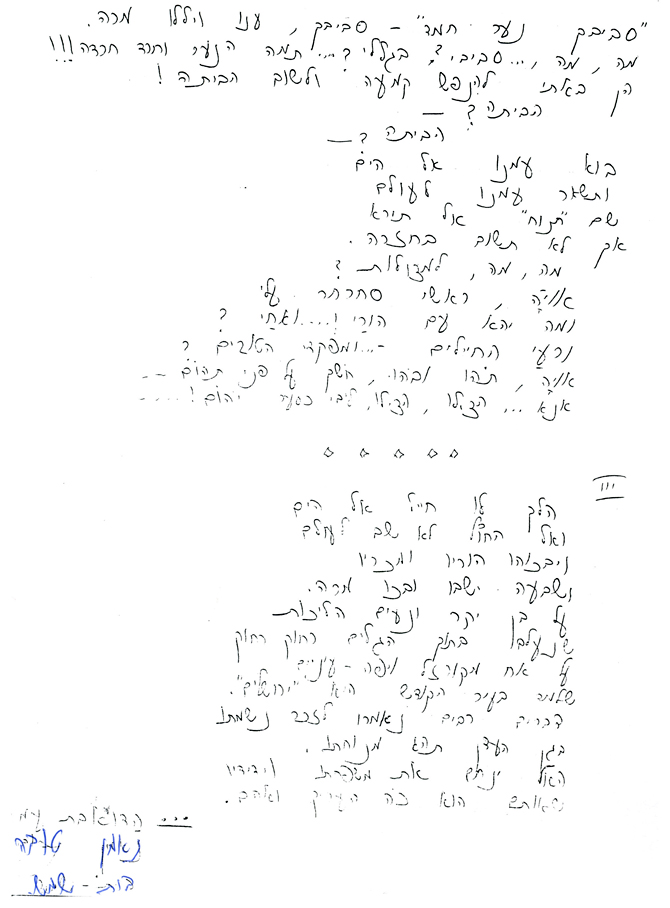 "סביבך נער חמד" – סביבך, ענו ויללו מרה.
מה, מה, ...סביבי? בגללי?... תמה הנער וחרד חרדה!!!
הן באתי להנפש קמעה ולשוב הביתה!
הביתה? –
הביתה? –
בוא עמנו אל הים
ותשאר עמנו לעולם
שם "תנוח" אל תירא
אך לא תשוב בחזרה.
מה, מה, למצולות?
אוויה, ראשי סחרחר עלי
ומה יהא עם הורי!....ואחי?
ורעי החיילים -...ומפקדי הטובים?
אויה, תהו ובהו, חשך על פני תהום –
אנא... הצילו, הצילו, ליבי כסער יהום!.....
III
הלך לו חייל אל הים
ואל החול לא שב לעולם
ויבכוהו הוריו ומכריו
ושבעה ישבו ובכו מרה.
על בן יקר ונעים הליכות
שנעלם בתוך הגלים רחוק רחוק
על אח מקורזל ויפה-עיניים
שלמד בעיר הקודש היא "ירושלים".
דברים רבים נאמרו לזכר נשמתו
בגן העדן תהא מנוחתו.
האל ינחם את משפחתו וידידיו
שאותם הוא כה העריך ואהב.
... הדואבת עמ
בית-שמש.